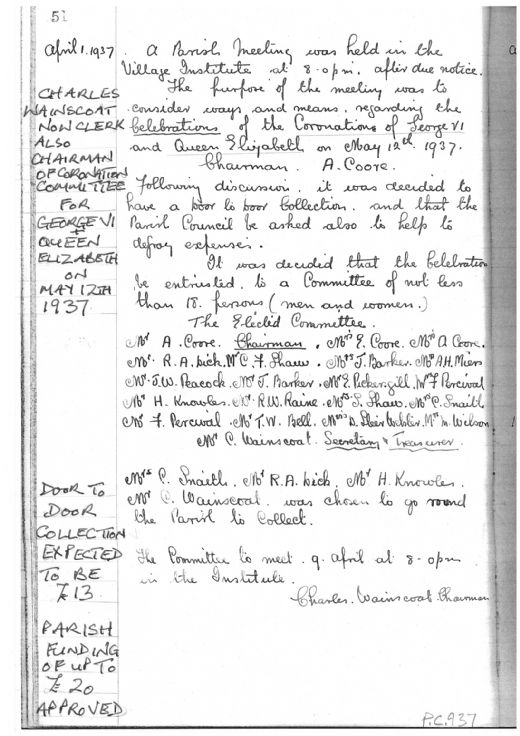 51
April 1. 1937. A Parish Meeting was held in the
Village Institute at 8-0pm, after due notice.
The purpose of the meeting was to
consider ways and means, regarding the
Celebrations of the Coronations of George VI
and Queen Elizabeth on May 12th 1937.
Chairman. A. Coore.
Following discussion, it was decided to
have a Door to Door Collection, and that the
Parish Council be asked also to help to
defray expenses.
It was decided that the Celebration
be entrusted to a Committee of not less
than 18 persons (men and women.)
The Elected Committee.
Mr A. Coore. Chairman, Mrs E. Coore. A. Coore.
Mr R.A. Dick. C. F. Shaw. Mrs J. Barker. A.H. Miers
Mr S.W. Peacock. Mr J. Barker. E. Pickersgill. F Percival
Mr H. Knowles. Mr R.W. Raine. Mrs S. Shaw. C. Snaith
Mr F. Percival Mr T.W. Bell. Mrs D. M. Wilson
Mr C. Wainscoat. Secretary & Treasurer.
Mrs C. Snaith. Mr R.A. Dick. Mr H. Knowles.
Mr C. Wainscoat. was chosen to go round
the Parish to Collect.
The Committee to meet. 9. April at 8-0pm
in the Institute.
Charles. Wainscoat. Chairman
CHARLES
WAINSCOAT
NOW CLERK
ALSO
CHAIRMAN
OF CORONATION
COMMITTEE
FOR
GEORGE VI
+
QUEEN
ELIZABETH
ON
MAY 12TH
1937
DOOR TO
DOOR
COLLECTION
EXPECTED
TO BE
£13
PARISH
FUNDING
OF UP TO
£20
APPROVED
P.C.937